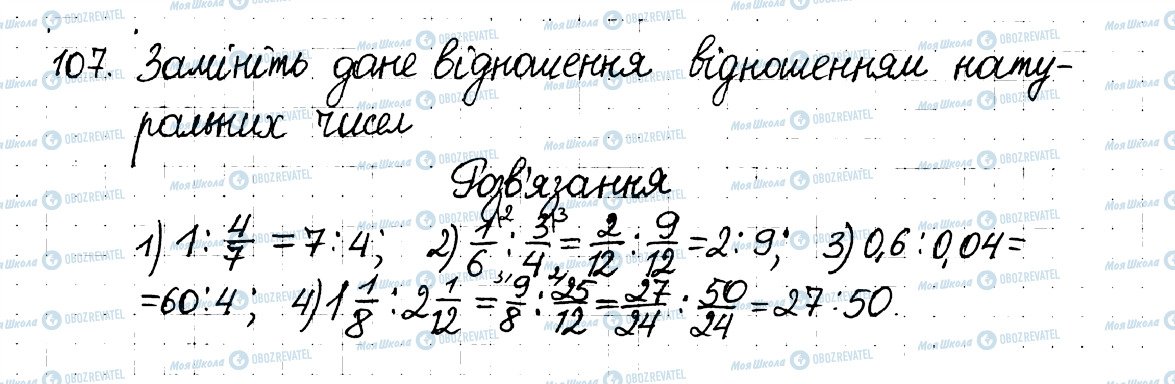 107. Замініть дане відношення відношенням нату-
ральних чисел
Розв'язання
1) 1 : 4/7 = 7 : 4; 2) 1/6 |2 : 3/4 |3 = 2/12 : 9/12 = 2 : 9; 3) 0,6 : 0,04 =
= 60 : 4; 4) 1 1/8 : 2 1/12 = 3\ 9/8 : 2\ 25/12 = 27/24 : 50/24 = 27 : 50.